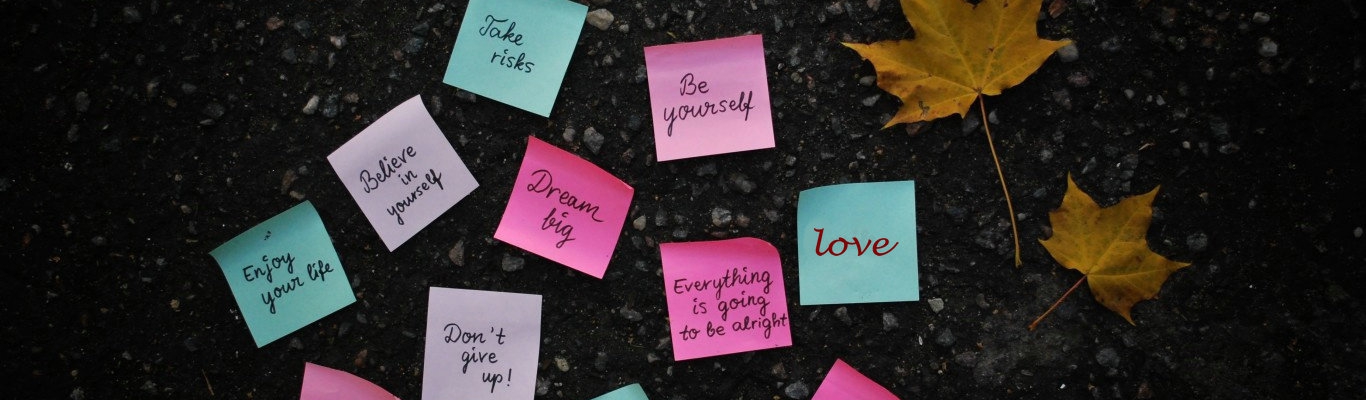 Take
risks
Be
yourself
Believe
in
yourself
Dream
big
love
Enjoy
your life
Everything
is going
to be alright
Don't
give
up!